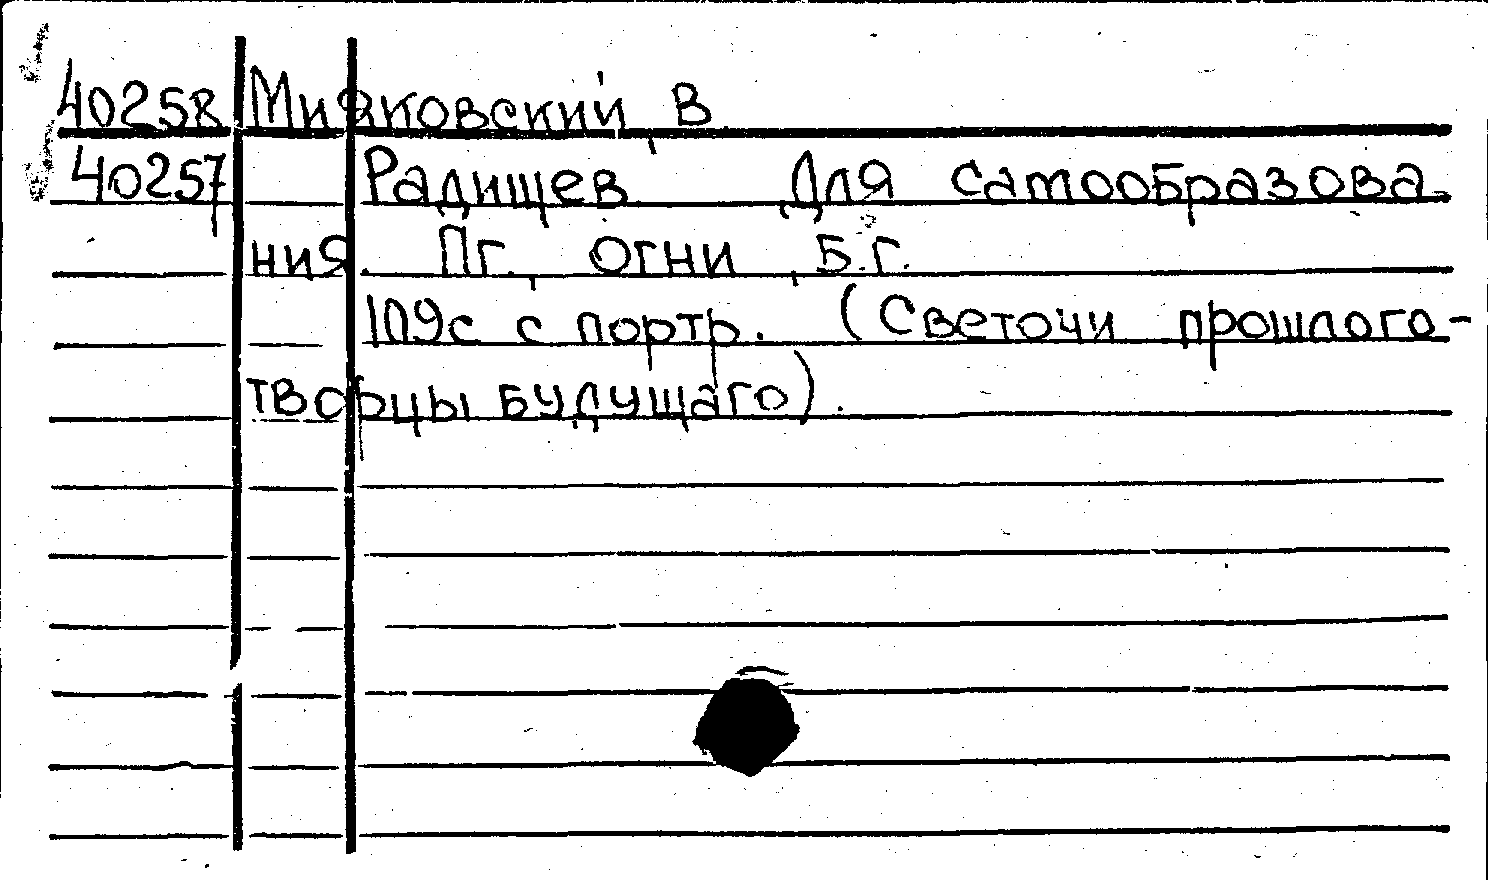 40258 Мияковский, В
40257 Радищев. Для самообразова-
ния. Пг., огни, Б.г.
109с с портр. (Светочи прошлого-
творцы будущаго).